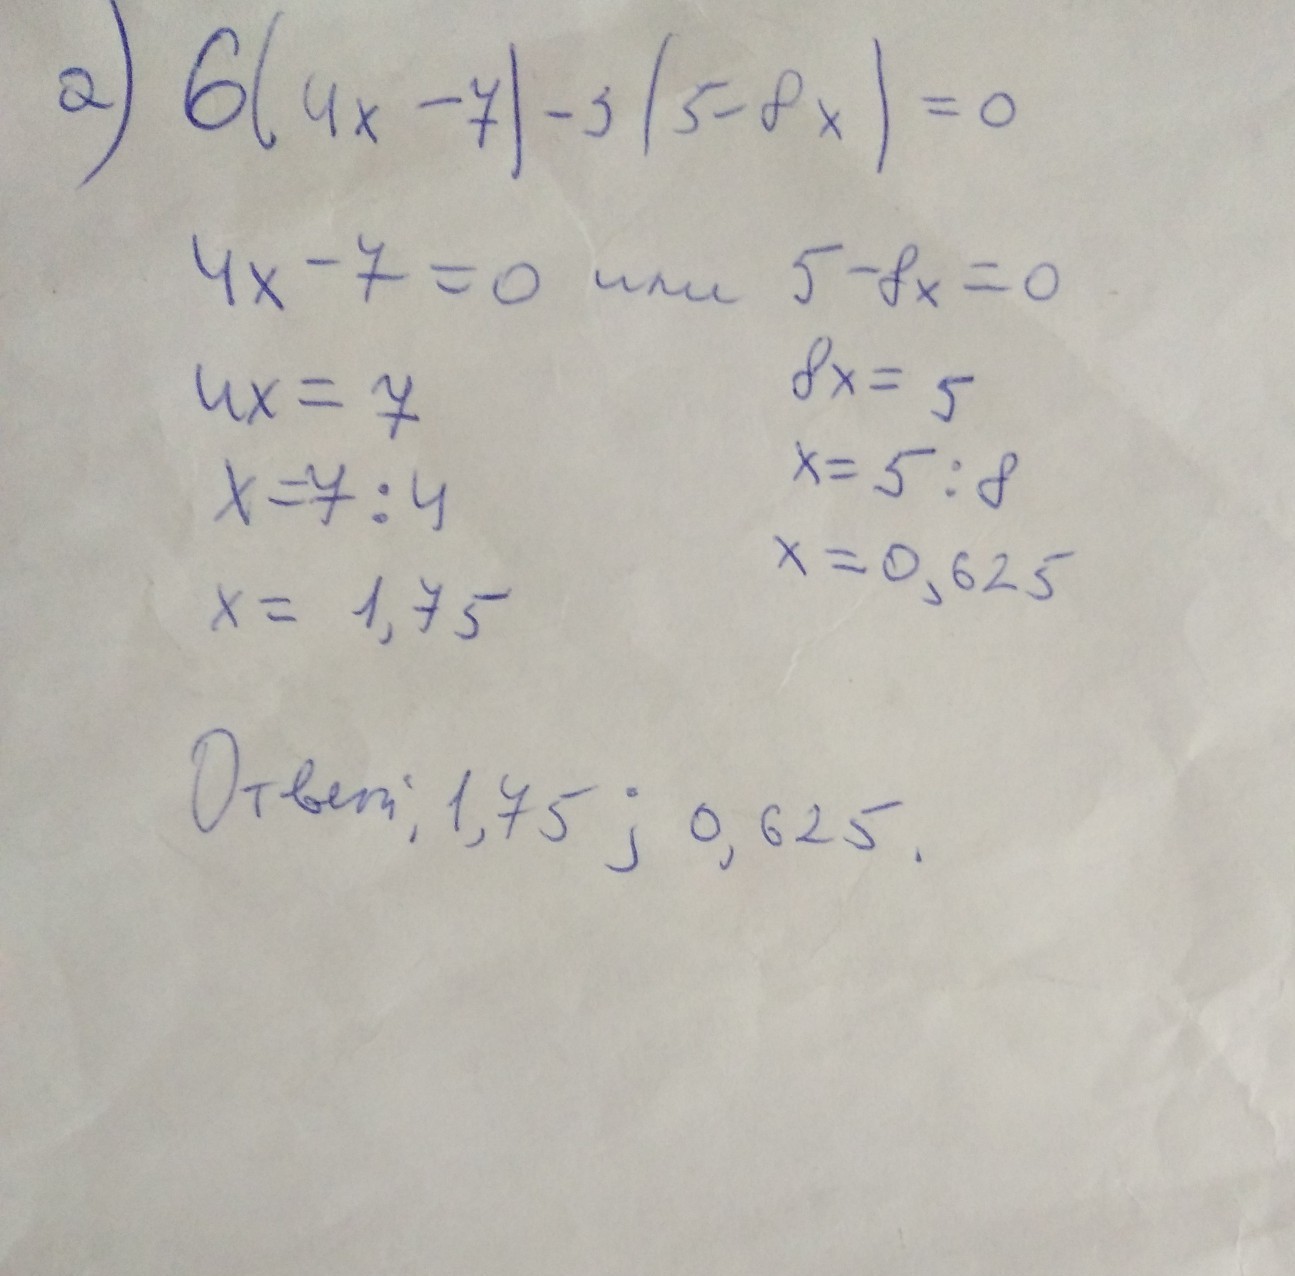 а) 6(4x - 7) - 3(5 - 8x) = 0
4x - 7 = 0 или 5 - 8x = 0
4x = 7 8x = 5
x = 7 : 4 x = 5 : 8
x = 1,75 x = 0,625
Ответ: 1,75 ; 0,625.